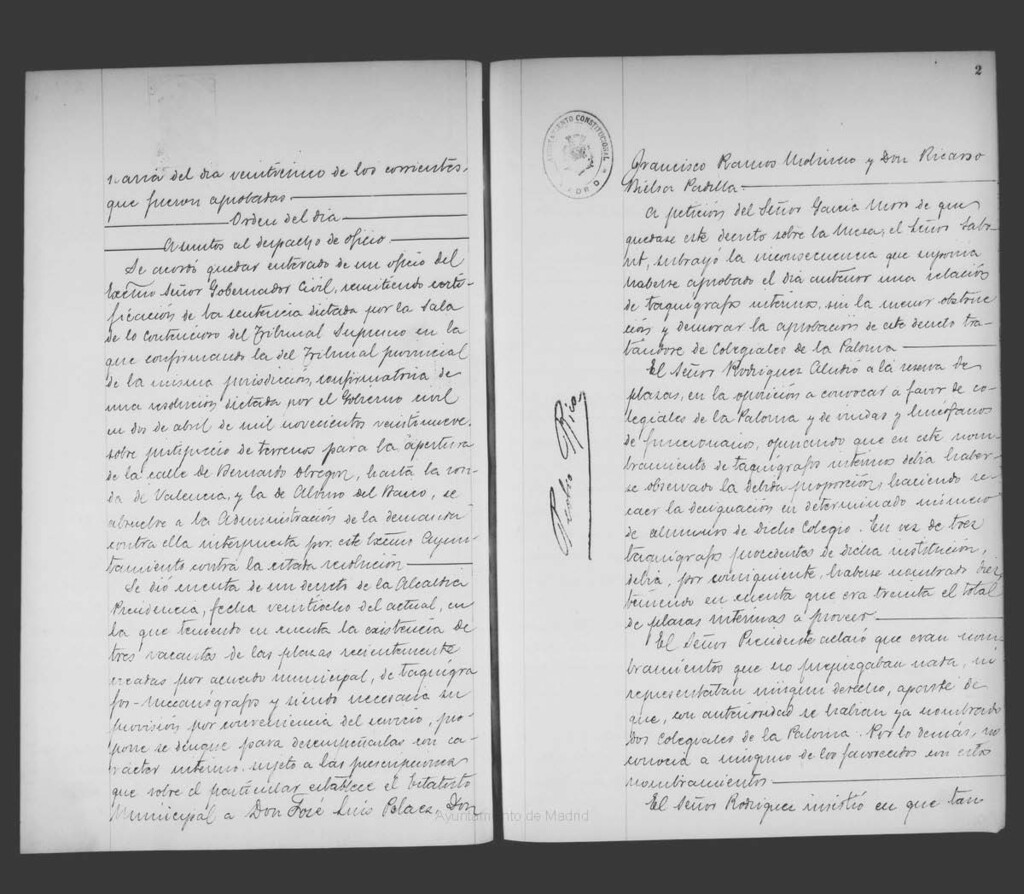 naria del dia veintiuno de los corrientes,
que fueron aprobadas
Orden del dia
Asuntos al despacho de oficio
Se acordó quedar enterado de un oficio del
Excmo Señor Gobernador Civil, remitiendo certi-
ficación de la sentencia dictada por la Sala
de lo Contencioso del Tribunal Supremo en la
que confirmando la del Tribunal provincial
de la misma jurisdicción, confirmatoria de
una resolución dictada por el Gobierno civil
en dos de abril de mil novecientos veintinueve,
sobre justiprecio de terrenos para la apertura
de la calle de Bernardo Obregón, hasta la ron-
da de Valencia, y la de Alvino del Barco, se
absuelve a la Administración de la demanda
contra ella interpuesta por este Excmo Ayun-
tamiento contra la citada resolución
Se dió cuenta de un decreto de la Alcaldia
Presidencia, fecha veintiocho del actual, en
la que teniendo en cuenta la existencia de
tres vacantes de las plazas recientemente
creadas por acuerdo municipal, de taquígra
fos-mecanógrafos y siendo necesaria su
provisión por conveniencia del servicio, pro-
pone se designe para desempeñarlas con ca-
rácter interino, sujeto a las prescripciones
que sobre el particular establece el Estatuto
Municipal a Don José Luis Pelaez, Don
Ayuntamiento de Madrid
2
AYUNTAMIENTO CONSTITUCIONAL
MADRID
Pedro Rico
Francisco Ramos Molinero y Don Ricardo
Bielsa Padilla
A petición del Señor Garcia Moro de que
quedase este decreto sobre la Mesa, el Señor Sabo-
rit, subrayó la inconsecuencia que suponia
haberse aprobado el dia anterior una relación
de taquígrafos interinos, sin la menor obstruc
ción y demorar la aprobación de este decreto tra-
tándose de Colegiales de la Paloma
El Señor Rodriguez aludió a la reserva de
plazas, en la oposición a convocar a favor de co-
legiales de la Paloma y de viudas y huérfanos
de funcionarios, opinando que en este nom-
bramiento de taquígrafos interinos debia haber-
se observado la debida proporción, haciendo re-
caer la designación en determinado número
de alumnos de dicho Colegio. En vez de tres
taquígrafos procedentes de dicha institución,
debia, por consiguiente, haberse nombrado diez,
teniendo en cuenta que era treinta el total
de plazas interinas a proveer
El Señor Presidente aclaró que eran nom-
bramientos que no prejuzgaban nada, ni
representaban ningún derecho, aparte de
que, con anterioridad se habian ya nombrado
dos Colegiales de la Paloma. Por lo demás, no
conocia a ninguno de los favorecidos con estos
nombramientos
El Señor Rodriguez insistió en que tan